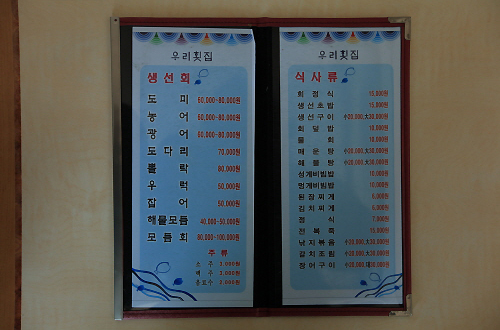 우리횟집
생선회
도 미 60,000~80,000원
농 어 60,000~80,000원
광 어 60,000~80,000원
도다리 70,000원
뽈 락 80,000원
우 럭 50,000원
잡 어 50,000원
해물모듬 40,000~50,000원
모듬회 80,000~100,000원
주 류
소 주 3,000원
맥 주 3,000원
음료수 2,000원
우리횟집
식사류
회 정 식 15,000원
생선초밥 15,000원
생선구이 小20,000,大30,000원
회 덮 밥 10,000원
물 회 10,000원
매 운 탕 小20,000,大30,000원
해 물 탕 小20,000,大30,000원
성게비빔밥 10,000원
멍게비빔밥 10,000원
된장찌개 6,000원
김치찌개 6,000원
정 식 7,000원
전 복 죽 10,000원
낙지볶음 小20,000,大30,000원
갈치조림 小20,000,大30,000원
장어구이 小20,000,大30,000원